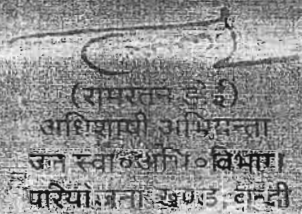 (रामरतन डोई)
अधिशाषी अभियन्ता
जन स्वा०अभि०विभाग।
परियोजना खण्ड, बून्दी